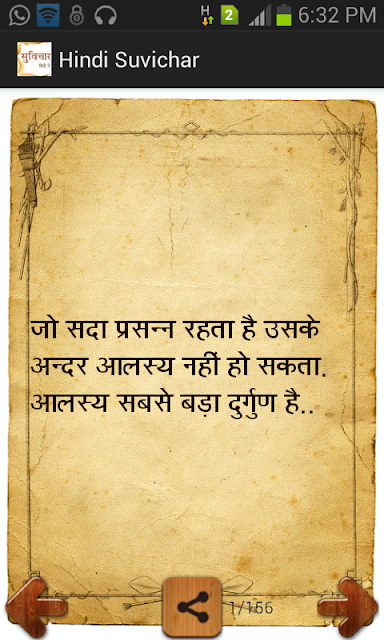 H 2 6:32 PM
सुविचार
हिंदी में
Hindi Suvichar
जो सदा प्रसन्न रहता है उसके
अन्दर आलस्य नहीं हो सकता.
आलस्य सबसे बड़ा दुर्गुण है..
1/156